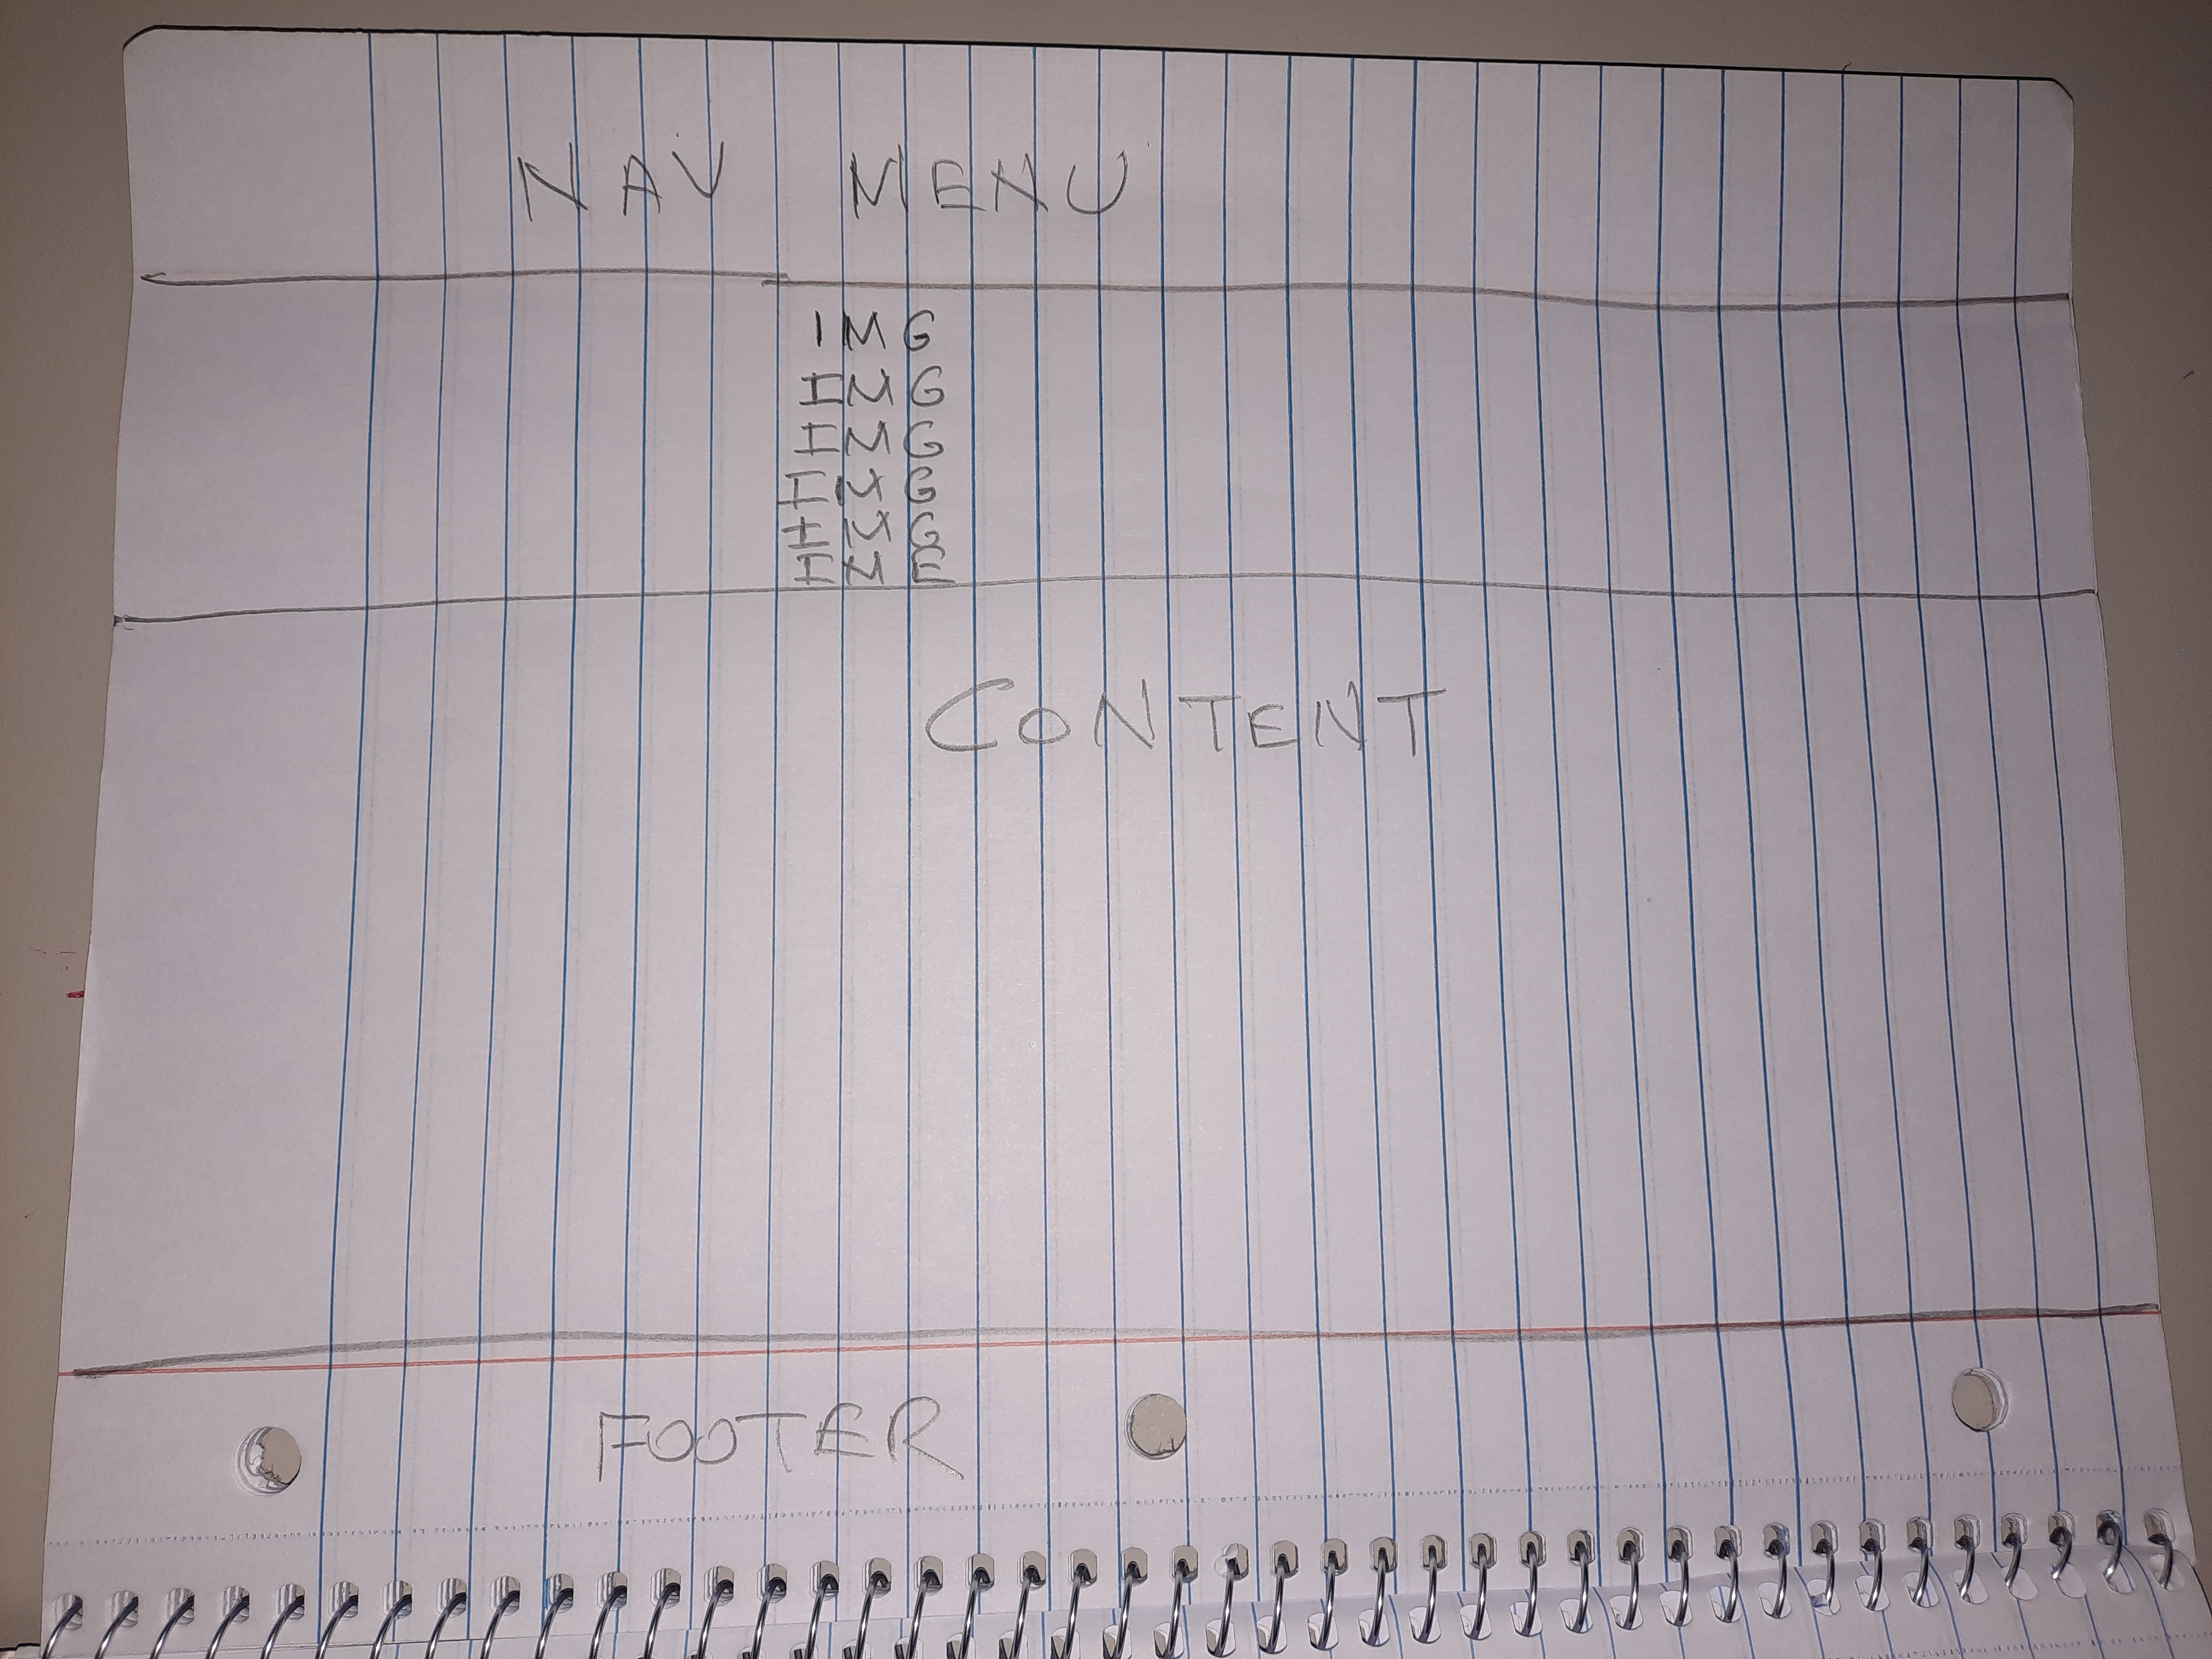 NAV MENU
IMG
IMG
IMG
IMG
IMG
IME
CONTENT
FOOTER